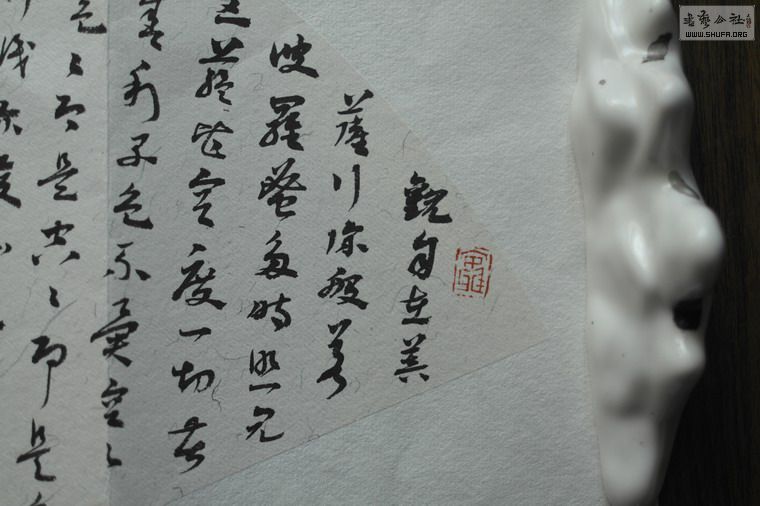 觀自在菩
薩行深般若
波羅蜜多時照見
五蘊皆空度一切苦
舍利子色不異空〻
色〻即是空〻即是
識亦復
書藝公社
WWW.SHUFA.ORG